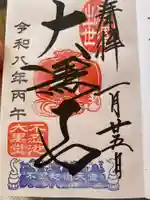 奉拝
一月廿五日
出世
大黒天
令和八年丙午
不忍池
大黒堂